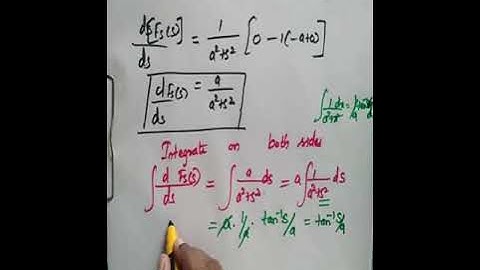 d[Fs(s)]/ds = 1/(a²+s²) [0 - 1(-a+0)]
d Fs(s)/ds = a/(a²+s²)
∫ 1/(a²+s²) ds = 1/a tan⁻¹ s/a
Integrate on both sides
∫ d/ds Fs(s) = ∫ a/(a²+s²) ds = a∫ 1/(a²+s²) ds
= a · 1/a · tan⁻¹ s/a = tan⁻¹ s/a